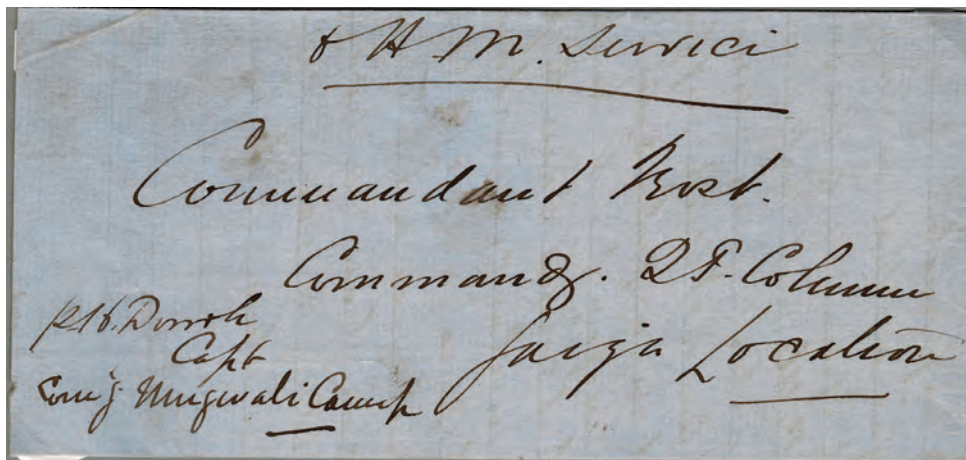 O H M. Service
Commandant Frost.
Commandg. Q T. Column
Gaiga Location
Capt
Comg Mngwali Camp